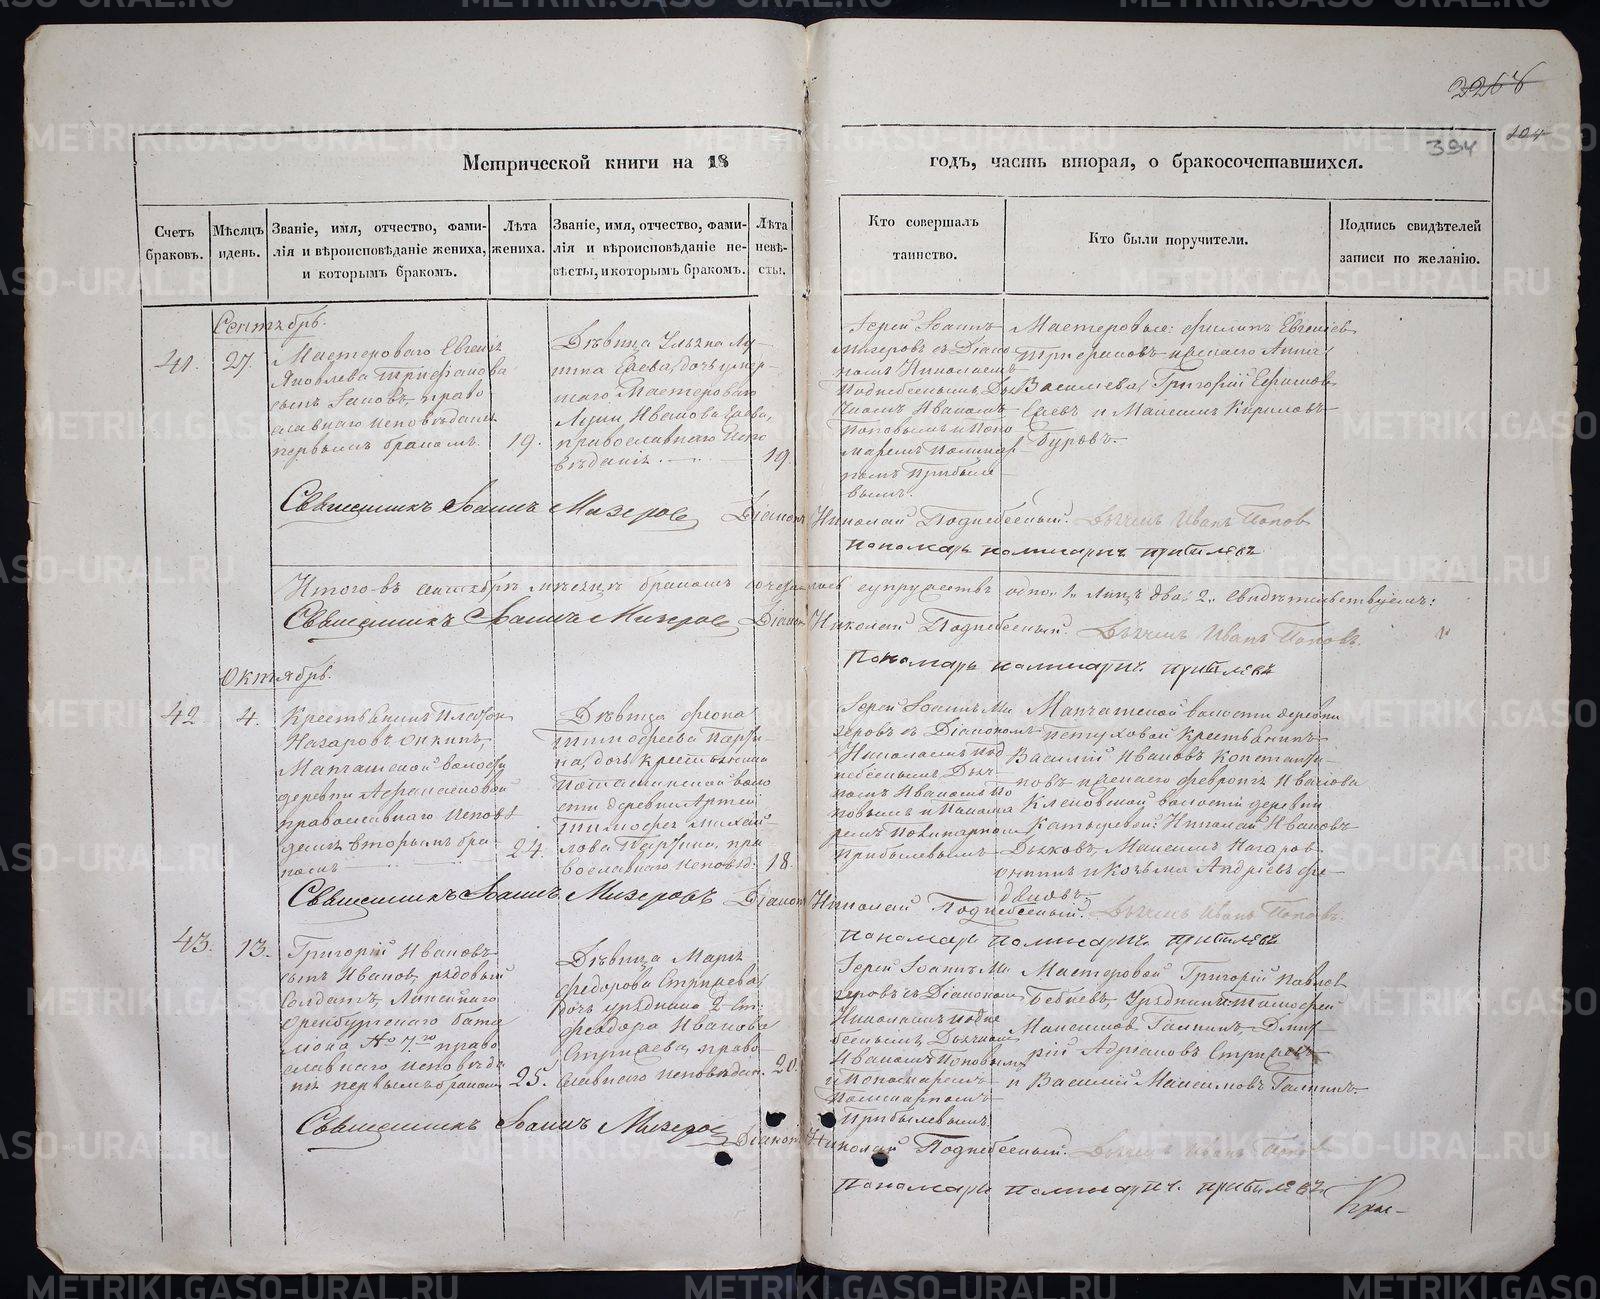 Метрической книги на 18
годъ, часть вторая, о бракосочетавшихся.
394
Счетъ браковъ.
Мѣсяцъ и день.
Званіе, имя, отчество, фами-
лія и вѣроисповѣданіе жениха,
и которымъ бракомъ.
Лѣта
жениха.
Званіе, имя, отчество, фами-
лія и вѣроисповѣданіе не-
вѣсты, и которымъ бракомъ.
Лѣта
невѣ-
сты.
Кто совершалъ
таинство.
Кто были поручители.
Подпись свидѣтелей
записи по желанію.
Сентябрь.
41.
27.
Мастероваго Евгенія
Яковлева Трифанова
сынъ право
славнаго исповѣданія
первымъ бракомъ.
19.
Дѣвица Ульяна Лу-
кина дочь умер-
шаго Мастероваго
Луки Иванова
православнаго испо
вѣданія.
19.
Іерей Іоаннъ
Мизеровъ съ Діако
номъ Николаемъ
Поднебеснымъ Дья
чкомъ Иваномъ
Поповымъ и Поно
маремъ Поликар
помъ Прибыле
вымъ.
Мастеровые: Филипъ Евгеніевъ
Трифановъ
Васильева, Григорій Ефимовъ
и Максимъ Кириловъ
Буровъ.
Священникъ Іоаннъ Мизеровъ Діаконъ Николай Поднебесный. Дьячекъ Иванъ Попов
пономарь поликарпъ прибылевъ
Итого въ сентябрѣ мѣсяцѣ бракомъ сочеталось супружествъ одно 1. Лицъ два 2. Свидѣтельствуемъ:
Священникъ Іоаннъ Мизеровъ Діаконъ Николай Поднебесный. Дьячекъ Иванъ Поповъ.
пономарь поликарпъ прибылевъ
Октябрь.
42.
4.
Крестьянинъ Платон
Назаровъ Онкинъ,
Манчажской волости
деревни Афанасковой
православнаго исповѣ
данія вторымъ бра
комъ
24.
Дѣвица
Тимофеева
дочь крестьянина
Поташинской воло
сти деревни Артей
Тимофея Михай-
лова пра
вославнаго исповѣд.
18.
Іерей Іоаннъ Ми
зеровъ съ Діакономъ
Николаемъ Под
небеснымъ Дьяч
комъ Иваномъ По
повымъ и Понома
ремъ Поликарпомъ
Прибылевымъ
Манчажской волости деревни
Петуховой Крестьянинъ
Василій Ивановъ Константи-
новъ
Кленовской волости деревни
Николай Ивановъ
Дьяковъ, Максимъ Назаровъ
Онкинъ и Козьма Андріевъ Фе-
Священникъ Іоаннъ Мизеровъ Діаконъ Николай Поднебесный. Дьячекъ Иванъ Поповъ.
пономарь поликарпъ прибылевъ
43.
13.
Григорій Ивановъ
сынъ Иванов, рядовый
Солдатъ, Линейнаго
Оренбургскаго бата
ліона № 7го право
славнаго исповѣда
нія первымъ бракомъ
25.
Дѣвица Марія
Федорова Стрижева
дочь урядника 2 ст.
Феодора Иванова
Стрижева, право
славнаго исповѣдан.
20.
Іерей Іоаннъ Ми
зеровъ съ Діакономъ
Николаемъ Подне
беснымъ Дьячкомъ
Иваномъ Поповымъ
и Пономаремъ
Поликарпомъ
Прибылевымъ
Мастеровой Григорій Павлов
Урядникъ Тимофей
Максимов Галкинъ, Дмит-
рій Адріановъ Стрижевъ
и Василій Максимовъ Галкинъ.
Священникъ Іоаннъ Мизеровъ Діаконъ Николай Поднебесный. Дьячекъ Иванъ Попов
пономарь поликарпъ прибылевъ